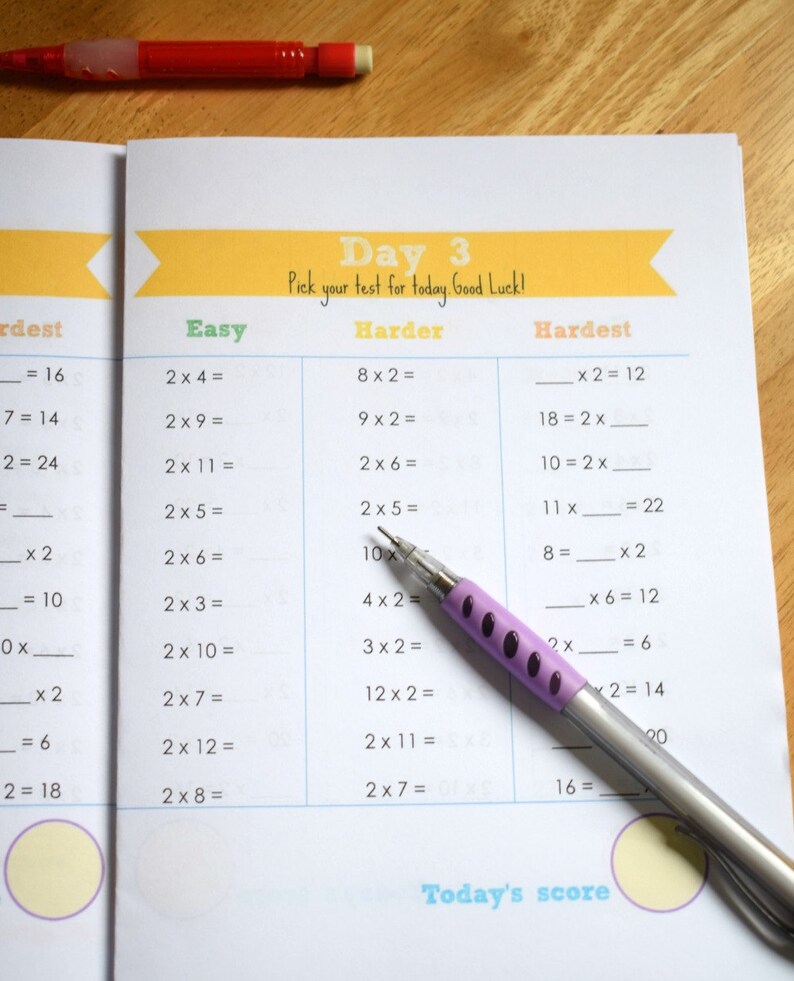 rdest
= 16
7 = 14
2 = 24
= ____
__ x 2
__ = 10
0 x ____
___ x 2
__ = 6
2 = 18
Day 3
Pick your test for today. Good Luck!
Easy
2 x 4 =
2 x 9 =
2 x 11 =
2 x 5 =
2 x 6 =
2 x 3 =
2 x 10 =
2 x 7 =
2 x 12 =
2 x 8 =
Harder
8 x 2 =
9 x 2 =
2 x 6 =
2 x 5 =
10 x
4 x 2 =
3 x 2 =
12 x 2 =
2 x 11 =
2 x 7 =
Hardest
____ x 2 = 12
18 = 2 x ____
10 = 2 x ____
11 x ____ = 22
8 = ____ x 2
____ x 6 = 12
2 x ____ = 6
x 2 = 14
____ 20
16 = ____
Today's score